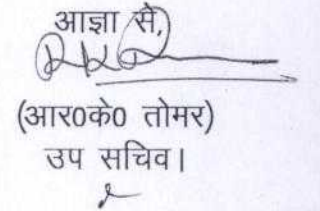 आज्ञा से,
(आर0के0 तोमर)
उप सचिव।